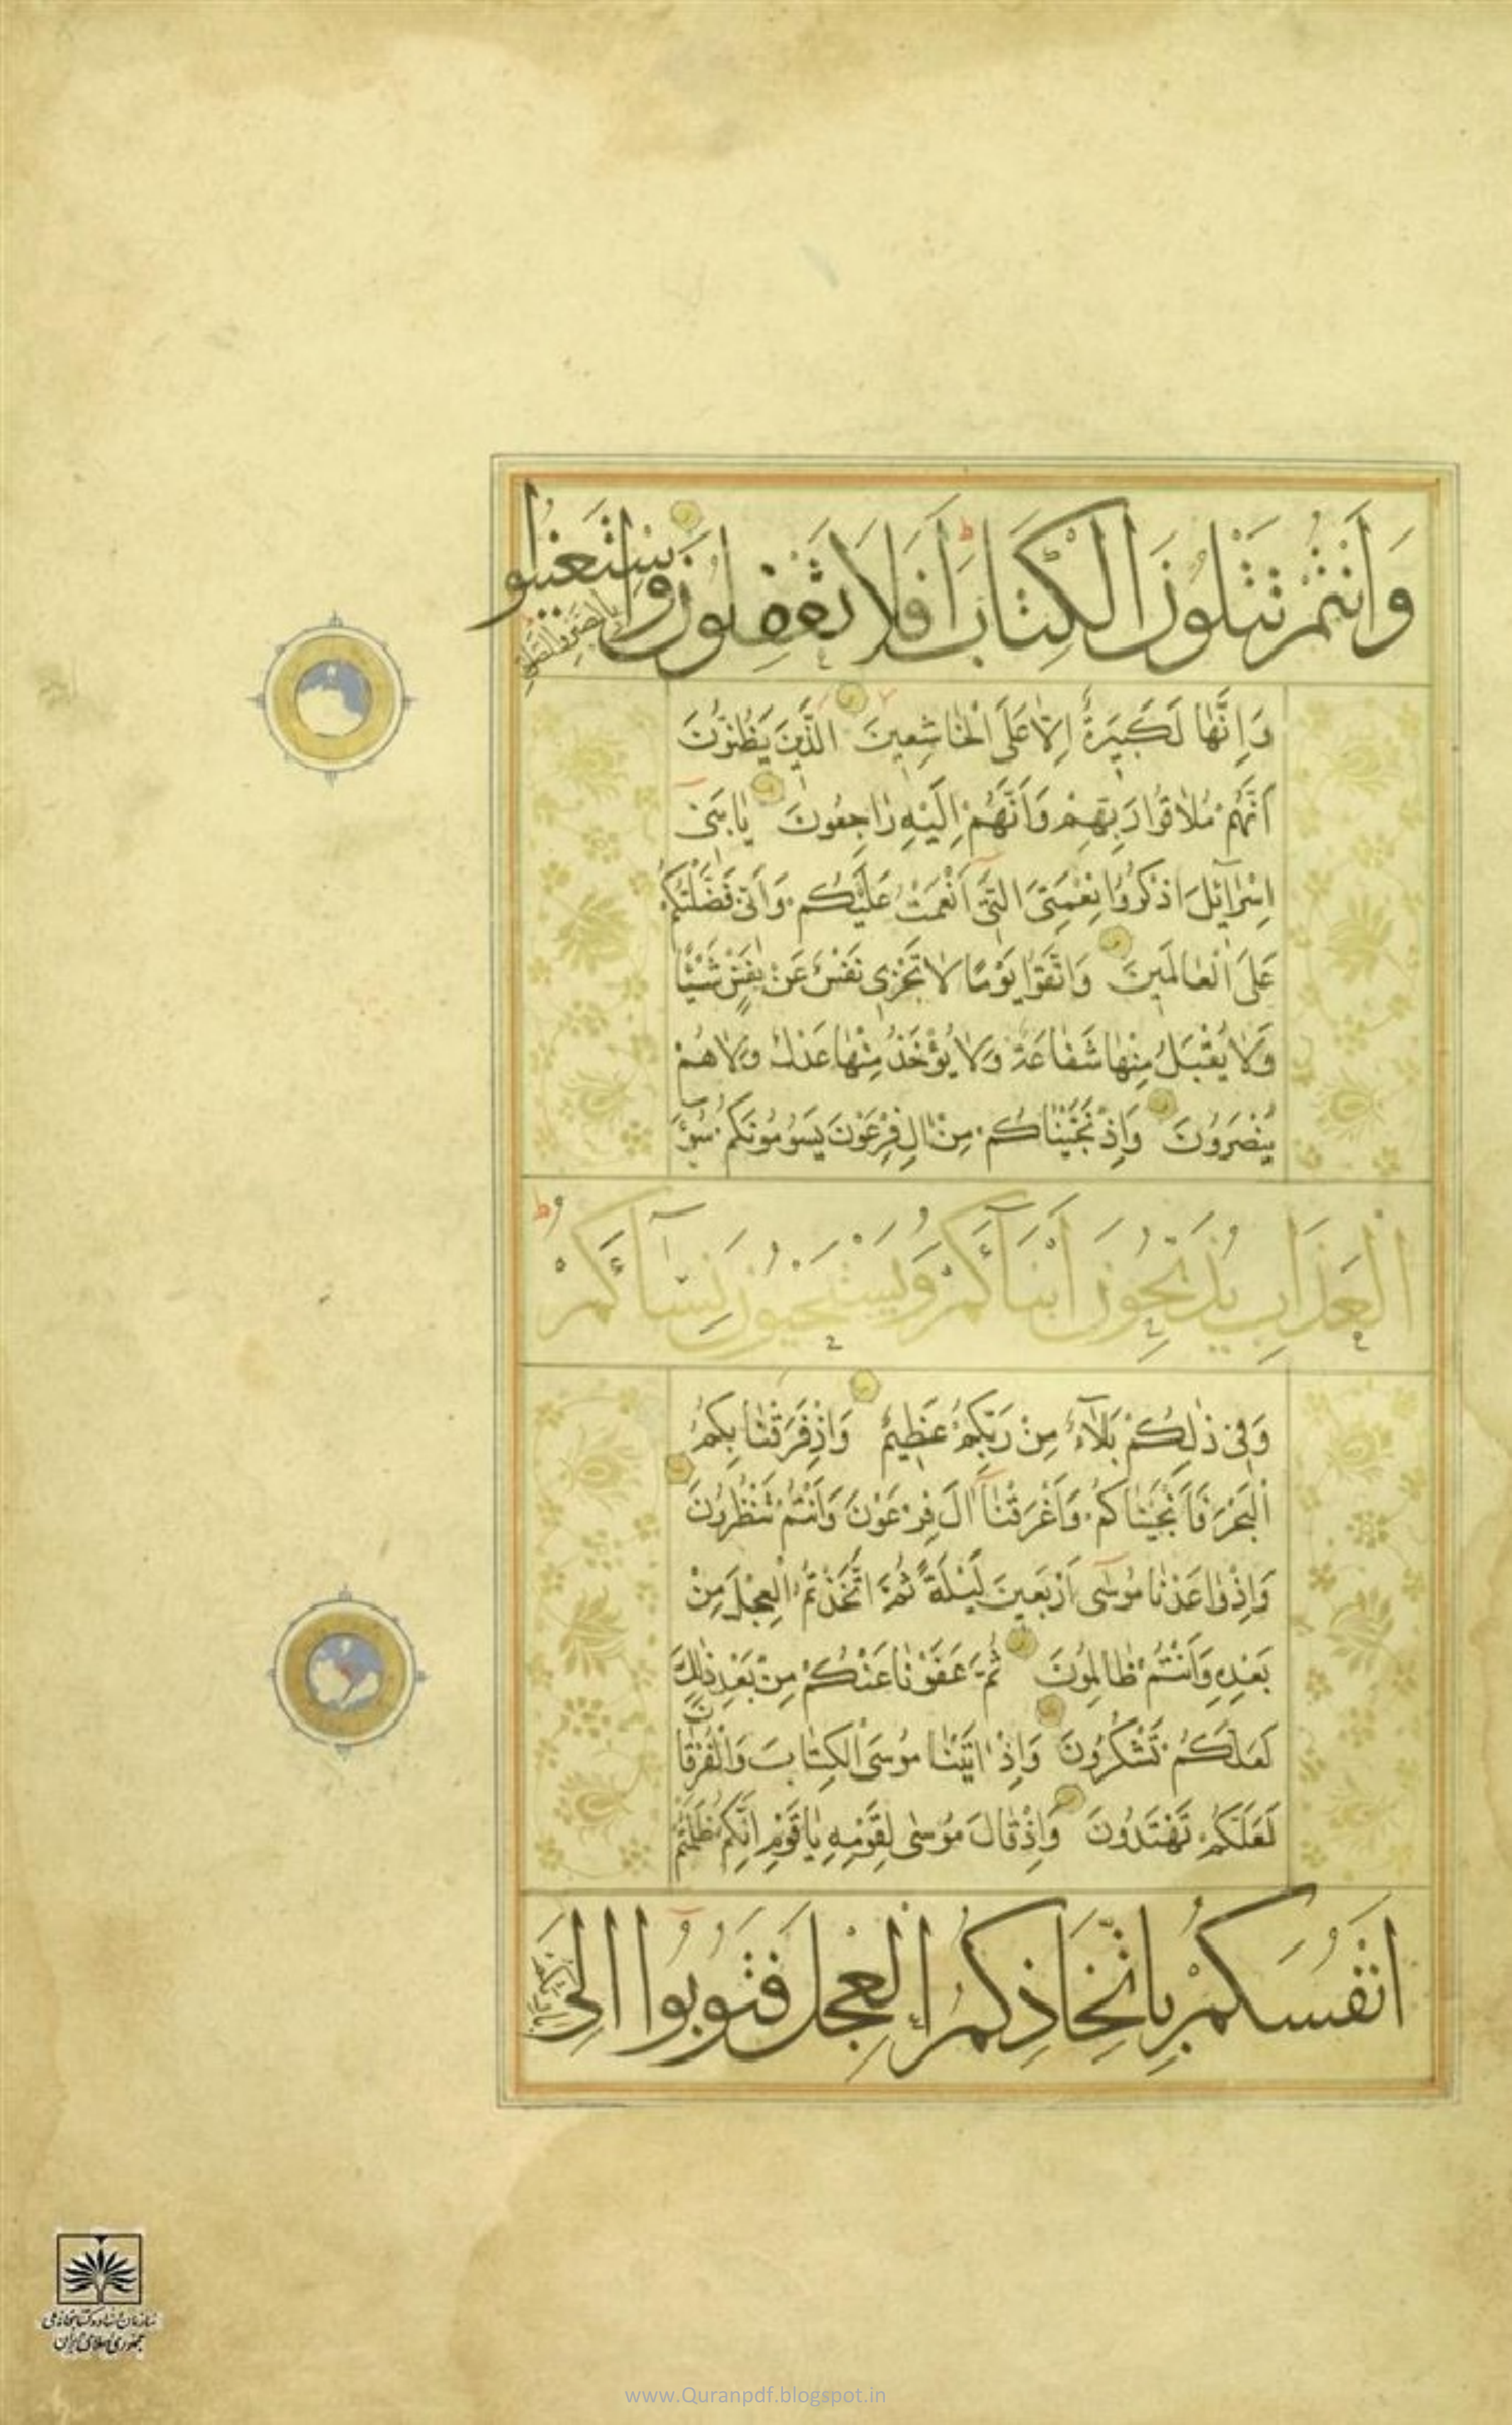 وَاَنْتُمْ تَتْلُونَ الْكِتَابَ اَفَلَا تَعْقِلُونَ وَاسْتَعِينُوا
بِالصَّبْرِ وَالصَّلٰوةِ
وَاِنَّهَا لَكَبِيرَةٌ اِلَّا عَلَى الْخَاشِعِينَ الَّذِينَ يَظُنُّونَ
اَنَّهُمْ مُلَاقُوا رَبِّهِمْ وَاَنَّهُمْ اِلَيْهِ رَاجِعُونَ يَا بَنِي
اِسْرَائِيلَ اذْكُرُوا نِعْمَتِيَ الَّتِي اَنْعَمْتُ عَلَيْكُمْ وَاَنِّي فَضَّلْتُكُمْ
عَلَى الْعَالَمِينَ وَاتَّقُوا يَوْمًا لَا تَجْزِي نَفْسٌ عَنْ نَفْسٍ شَيْئًا
وَلَا يُقْبَلُ مِنْهَا شَفَاعَةٌ وَلَا يُؤْخَذُ مِنْهَا عَدْلٌ وَلَا هُمْ
يُنْصَرُونَ وَاِذْ نَجَّيْنَاكُمْ مِنْ اٰلِ فِرْعَوْنَ يَسُومُونَكُمْ سُوءَ
الْعَذَابِ يُذَبِّحُونَ اَبْنَاءَكُمْ وَيَسْتَحْيُونَ نِسَاءَكُمْ
وَفِي ذٰلِكُمْ بَلَاءٌ مِنْ رَبِّكُمْ عَظِيمٌ وَاِذْ فَرَقْنَا بِكُمُ
الْبَحْرَ فَاَنْجَيْنَاكُمْ وَاَغْرَقْنَا اٰلَ فِرْعَوْنَ وَاَنْتُمْ تَنْظُرُونَ
وَاِذْ وَاعَدْنَا مُوسٰى اَرْبَعِينَ لَيْلَةً ثُمَّ اتَّخَذْتُمُ الْعِجْلَ مِنْ
بَعْدِهِ وَاَنْتُمْ ظَالِمُونَ ثُمَّ عَفَوْنَا عَنْكُمْ مِنْ بَعْدِ ذٰلِكَ
لَعَلَّكُمْ تَشْكُرُونَ وَاِذْ اٰتَيْنَا مُوسَى الْكِتَابَ وَالْفُرْقَانَ
لَعَلَّكُمْ تَهْتَدُونَ وَاِذْ قَالَ مُوسٰى لِقَوْمِهِ يَا قَوْمِ اِنَّكُمْ ظَلَمْتُمْ
اَنْفُسَكُمْ بِاتِّخَاذِكُمُ الْعِجْلَ فَتُوبُوا اِلٰى
سازمان اسناد و کتابخانه ملی
جمهوری اسلامی ایران
www.Quranpdf.blogspot.in